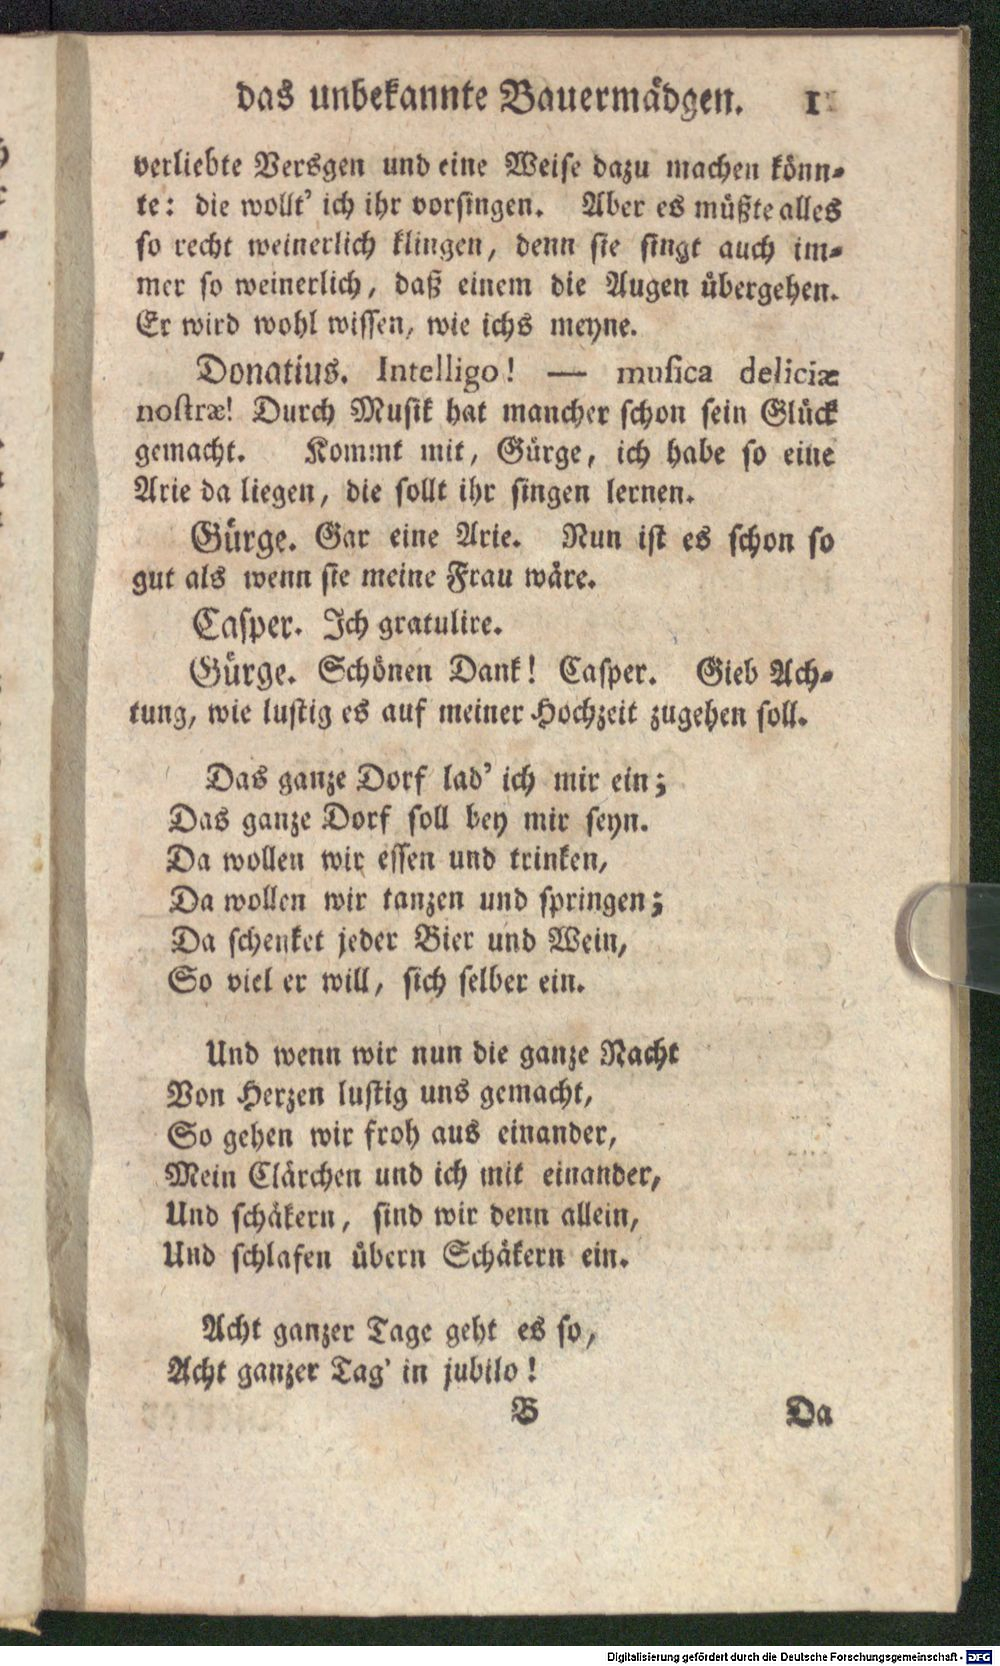 das unbekannte Bauermädgen. 1
verliebte Versgen und eine Weise dazu machen könn-
te: die wollt' ich ihr vorsingen. Aber es müßte alles
so recht weinerlich klingen, denn sie singt auch im-
mer so weinerlich, daß einem die Augen übergehen.
Er wird wohl wissen, wie ichs meyne.
Donatius. Intelligo! — musica deliciæ
nostræ! Durch Musik hat mancher schon sein Glück
gemacht. Kommt mit, Gürge, ich habe so eine
Arie da liegen, die sollt ihr singen lernen.
Gürge. Gar eine Arie. Nun ist es schon so
gut als wenn sie meine Frau wäre.
Casper. Ich gratulire.
Gürge. Schönen Dank! Casper. Gieb Ach-
tung, wie lustig es auf meiner Hochzeit zugehen soll.
Das ganze Dorf lad' ich mir ein;
Das ganze Dorf soll bey mir seyn.
Da wollen wir essen und trinken,
Da wollen wir tanzen und springen;
Da schenket jeder Bier und Wein,
So viel er will, sich selber ein.
Und wenn wir nun die ganze Nacht
Von Herzen lustig uns gemacht,
So gehen wir froh aus einander,
Mein Clärchen und ich mit einander,
Und schäkern, sind wir denn allein,
Und schlafen übern Schäkern ein.
Acht ganzer Tage geht es so,
Acht ganzer Tag' in jubilo!
B Da
Digitalisierung gefördert durch die Deutsche Forschungsgemeinschaft - DFG